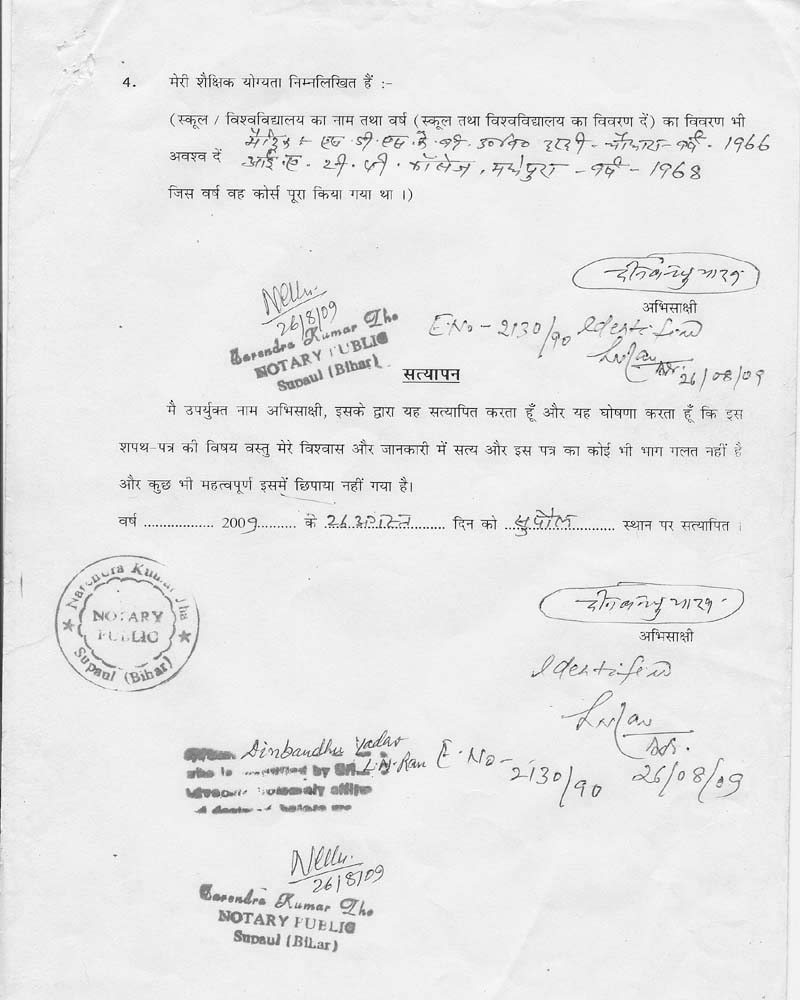 4. मेरी शैक्षिक योग्यता निम्नलिखित हैं :-
(स्कूल / विश्वविद्यालय का नाम तथा वर्ष (स्कूल तथा विश्वविद्यालय का विवरण दें) का विवरण भी
वर्ष - 1966
अवश्य दें कॉलेज, मधेपुरा - वर्ष - 1968
जिस वर्ष वह कोर्स पूरा किया गया था ।)
अभिसाक्षी
26/8/09
Narendra Kumar Jha
NOTARY PUBLIC
Supaul (Bihar)
E.No - 2130/90 Identified
26/08/09
सत्यापन
मै उपर्युक्त नाम अभिसाक्षी, इसके द्वारा यह सत्यापित करता हूँ और यह घोषणा करता हूँ कि इस
शपथ-पत्र की विषय वस्तु मेरे विश्वास और जानकारी में सत्य और इस पत्र का कोई भी भाग गलत नहीं है
और कुछ भी महत्वपूर्ण इसमें छिपाया नहीं गया है।
वर्ष .................. 2009.......... के .26 अगस्त......... दिन को ..सुपौल............ स्थान पर सत्यापित ।
Narendra Kumar Jha
NOTARY
PUBLIC
Supaul (Bihar)
अभिसाक्षी
Identified
Dinbandhu Yadav
who is by
E.No - 2130/90
26/08/09
26/8/09
Narendra Kumar Jha
NOTARY PUBLIC
Supaul (Bihar)